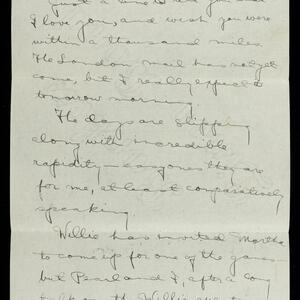 Just a line to tell you that
I love you, and wish you were
within a thousand miles.
The London mail has not yet
come, but I really expect it
tomorrow morning.
The days are slipping
along with incredible
rapidity — easy ones they are
for me, at least comparatively
speaking.
Willie has invited Martha
to come up for one of the games
but Pearl and I, after a long
talk with Willie